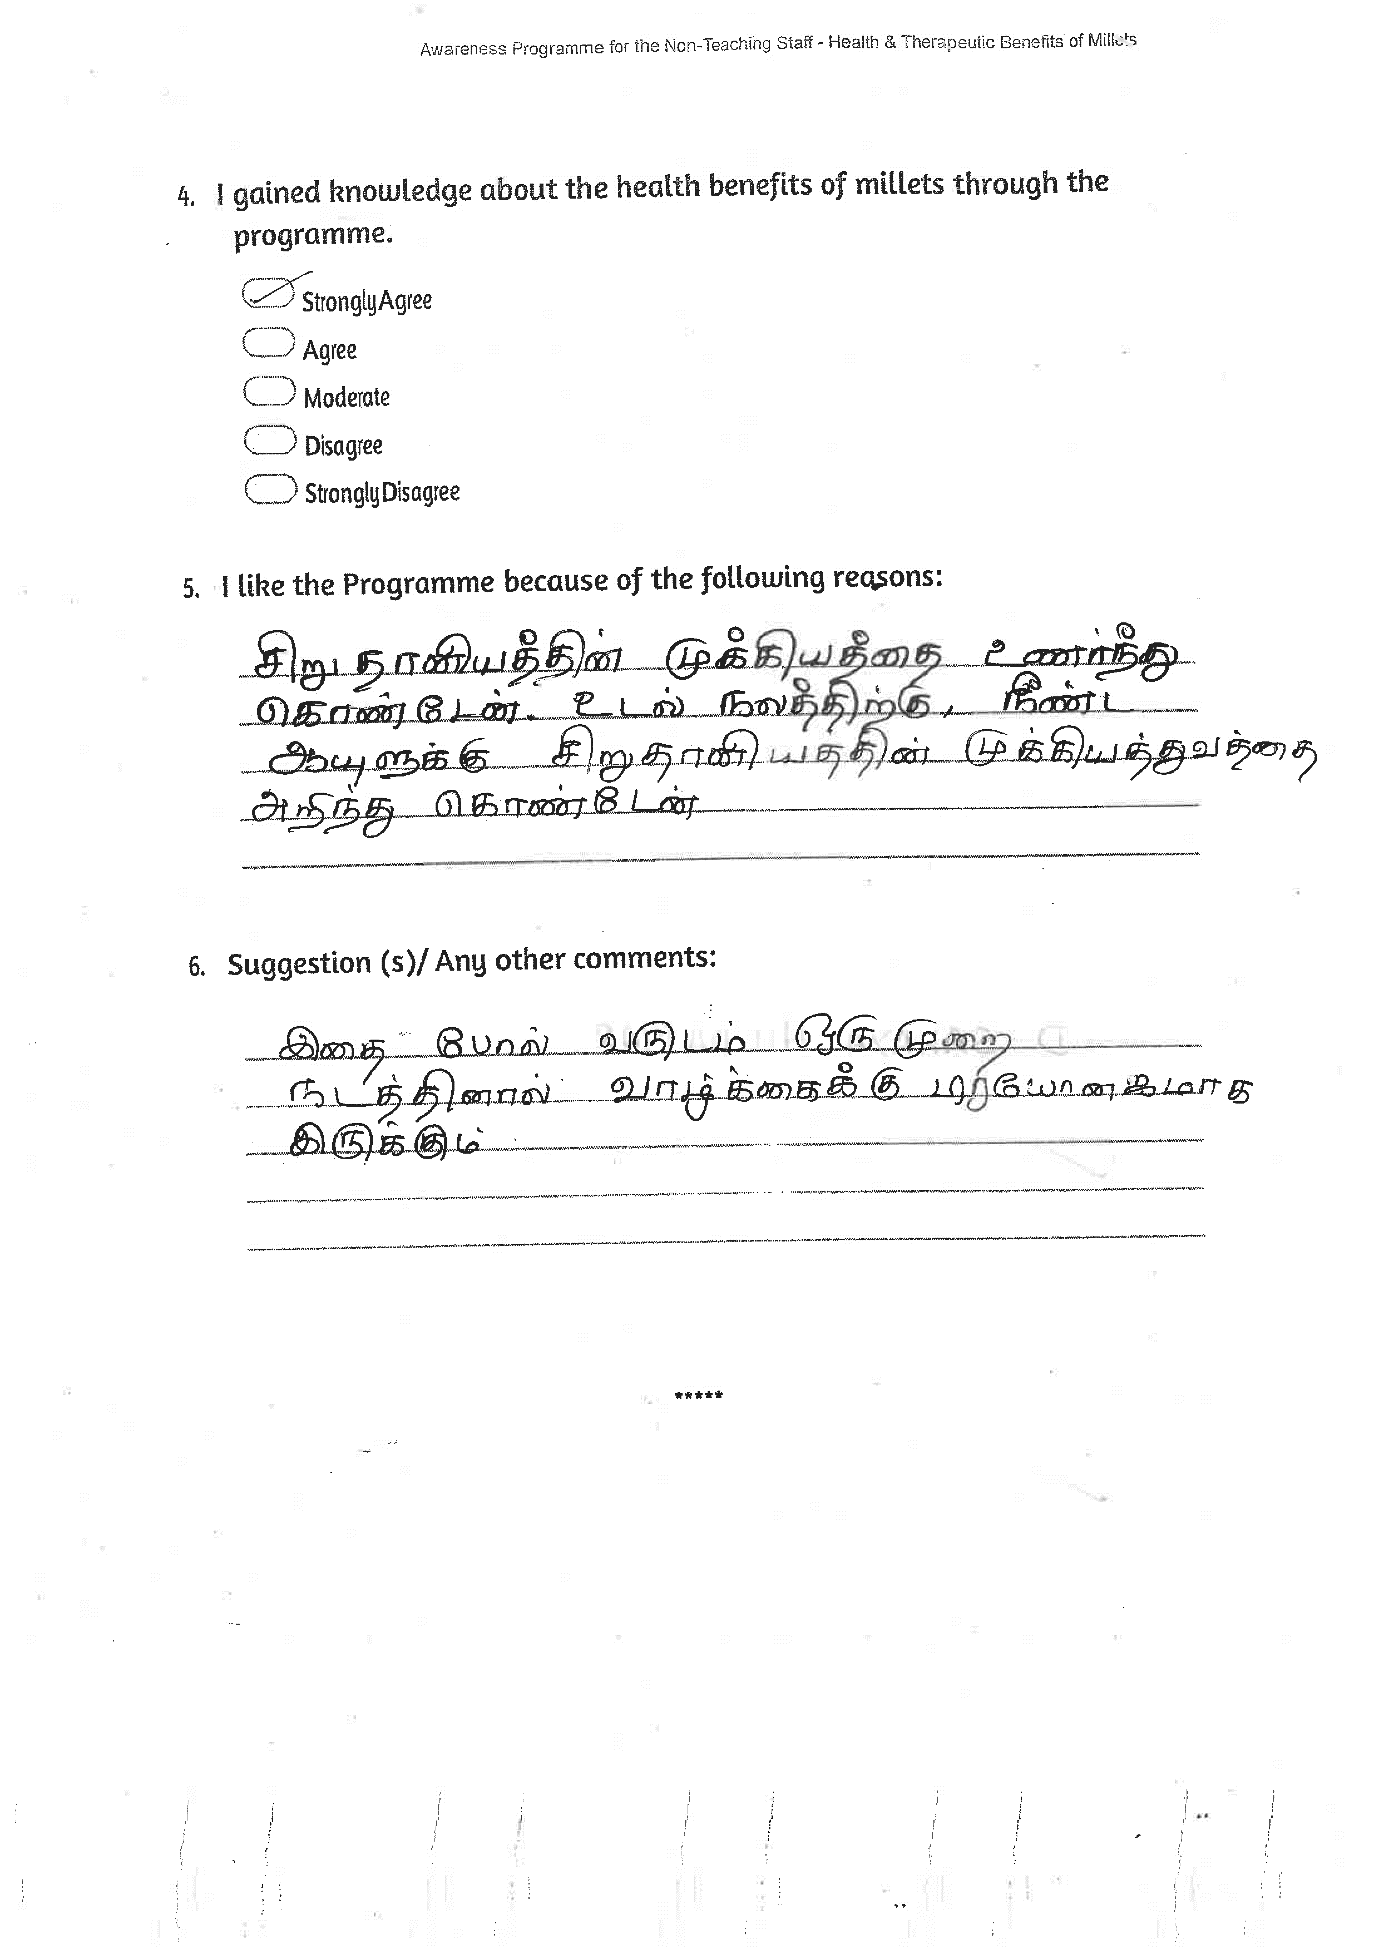 Awareness Programme for the Non-Teaching Staff - Health & Therapeutic Benefits of Millets
4. I gained knowledge about the health benefits of millets through the
programme.
Strongly Agree
Agree
Moderate
Disagree
Strongly Disagree
5. I like the Programme because of the following reasons:
சிறு தானியத்தின் முக்கியத்தை உணர்ந்து
கொண்டேன். உடல் நலத்திற்கு, நீண்ட
ஆயுளுக்கு சிறுதானியத்தின் முக்கியத்துவத்தை
அறிந்து கொண்டேன்
6. Suggestion (s)/ Any other comments:
இதை போல் வருடம் ஒரு முறை
நடத்தினால் வாழ்க்கைக்கு
இருக்கும்
*****